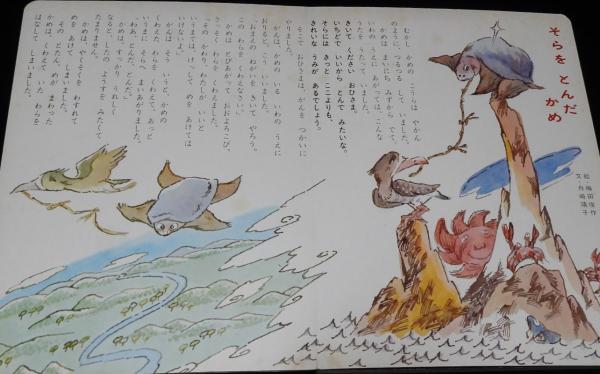 そらを とんだ
かめ
絵・梅田俊作
文・舟崎靖子
むかし かめの こうらは やかん
のように、つるつる して いました。
かめは まいにち みずから でて、
いわの うえに あがっては、こんな
うたを うたって いました。
きいて ください おひさま。
いちどで いいから とんで みたいな。
そらには きっと ここよりも、
きれいな うみが あるでしょう。
そこで おひさまは、がんを つかいに
やりました。
がんは、かめの いる いわの うえに
おりると、こう いいました。
「おまえの ねがいを きいて やろう。
この わらを くわえなさい。」
かめは とびあがって おおよろこび。
さっそく わらを くわえました。
「その かわり、わたしが いいと
いうまでは、けっして めを あけては
いけないよ。」
がんは そう いうと、かめの
くわえた わらを くわえて、あっと
いうまに そらへ まいあがりました。
「わあ、とんだ、とんだ。」
かめは すっかり うれしく
なると、したの ようすを みたくて
たまりません。
かめは やくそくを わすれて
めを あけて しまいました。
その とたん、めが まわった
かめは、くわえて いた わらを
はなして しまいました。